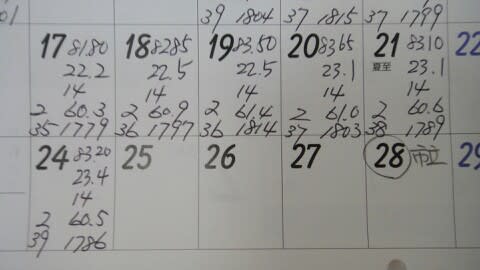 01
39 1804
37 1815
37 1799
17 8180
22.2
14
2 60.3
35 1779
18 8285
22.5
14
2 60.9
36 1797
19 83.50
22.5
14
2 61.4
36 1814
20 8365
23.1
14
2 61.0
37 1803
21 8310
夏至 23.1
14
2 60.6
38 1789
22
24 83.20
23.4
14
2 60.5
39 1786
25
26
27
28 市立
29